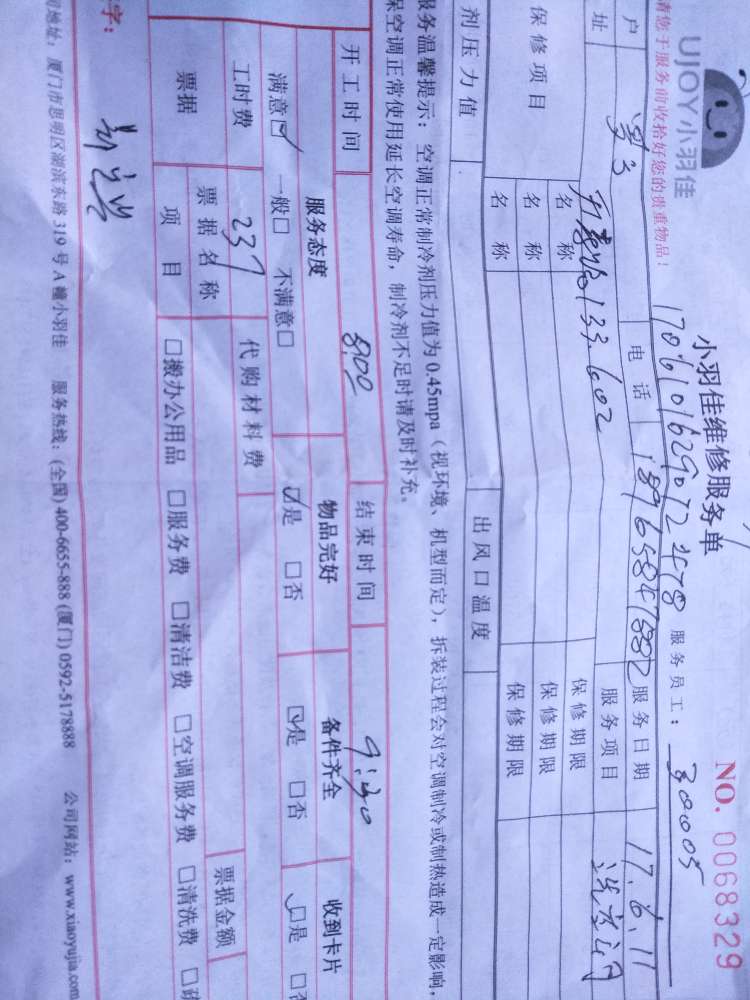 UJOY小羽佳
小羽佳维修服务单
NO. 0068329
请您于服务前收拾好您的贵重物品！
服务员工： 30005
户
电话
服务日期 17.6.11
址
133.602
服务项目
保修项目
名称
保修期限
名称
保修期限
名称
保修期限
剂压力值
出风口温度
服务温馨提示：空调正常制冷剂压力值为0.45mpa（视环境、机型而定），拆装过程会对空调制冷或制热造成一定影响，
保空调正常使用延长空调寿命，制冷剂不足时请及时补充。
开工时间 8:00 结束时间 9:30
服务态度 物品完好 备件齐全 收到卡片
满意☑ 一般□ 不满意□ ☑是 □否 ☑是 □否 ☑是 □否
工时费 237 代购材料费
票据 票据名称 票据金额
项目 □搬办公用品 □服务费 □清洁费 □空调服务费 □清洗费
字：
司地址：厦门市思明区湖滨东路319号A幢小羽佳 服务热线：(全国) 400-6655-888 (厦门) 0592-5178888 公司网站：www.xiaoyujia.com